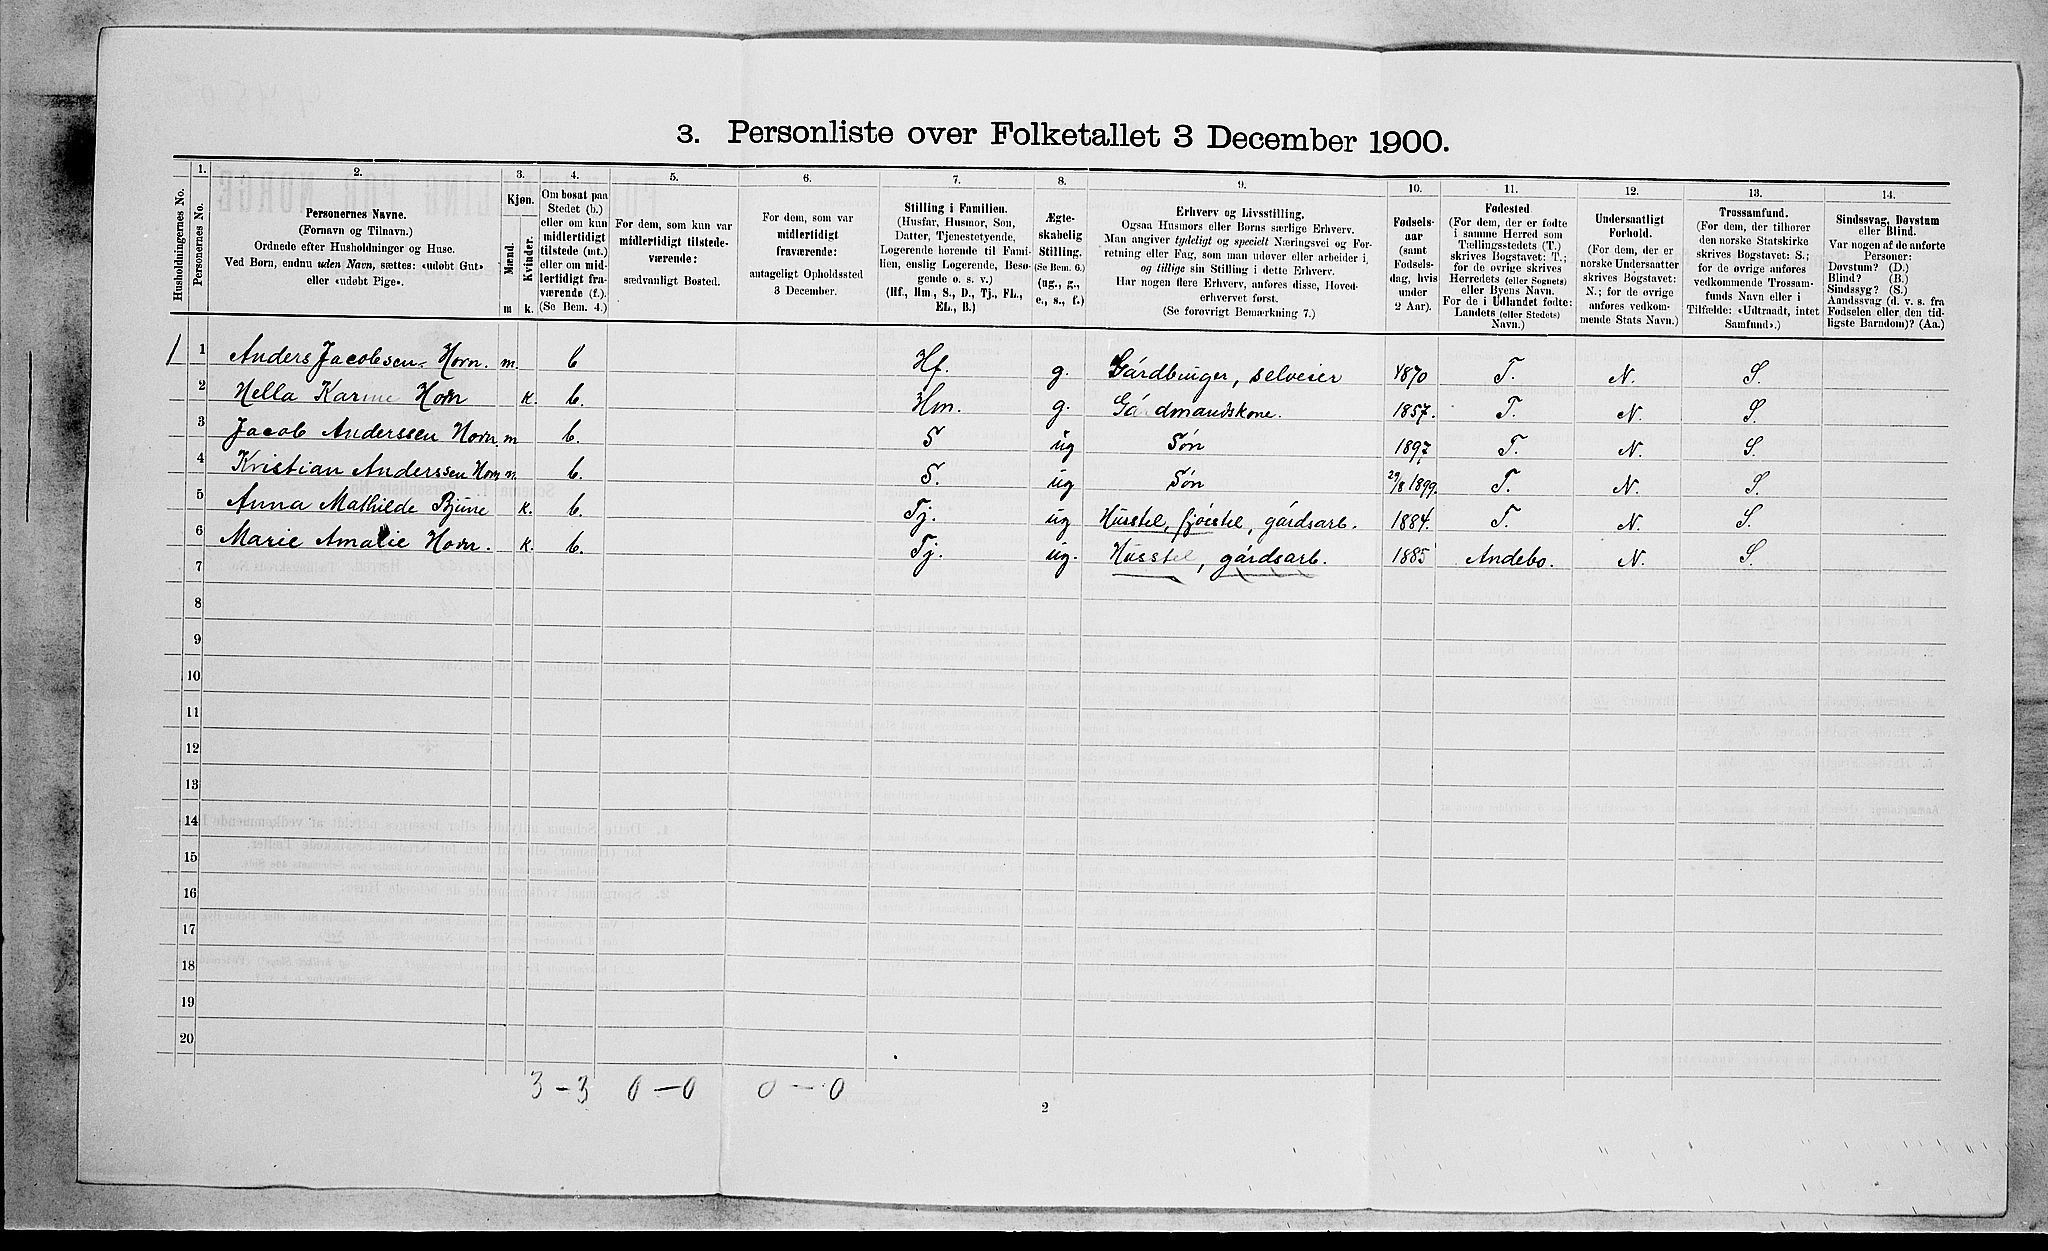 3. Personliste over Folketallet 3 December 1900.
Husholdningernes No.
1.
Personernes No.
2.
Personernes Navne.
(Fornavn og Tilnavn.)
Ordnede efter Husholdninger og Huse.
Ved Børn, endnu uden Navn, sættes: «udøbt Gut»
eller «udøbt Pige».
3.
Kjøn.
Mænd.
Kvinder.
m k.
4.
Om bosat paa
Stedet (b.)
eller om kun
midlertidigt
tilstede (mt.)
eller om mid-
lertidigt fra-
værende (f.).
(Se Bem. 4.)
5.
For dem, som kun var
midlertidigt tilstede-
værende:
sædvanligt Bosted.
6.
For dem, som var
midlertidigt
fraværende:
antageligt Opholdssted
3 December.
7.
Stilling i Familien.
(Husfar, Husmor, Søn,
Datter, Tjenestetyende,
Logerende hørende til Fami-
lien, enslig Logerende, Besø-
gende o. s. v.)
(Hf., Hm., S., D., Tj., FL.,
EL., B.)
8.
Ægte-
skabelig
Stilling.
(Se Bem. 6.)
(ug., g.,
e., s., f.)
9.
Erhverv og Livsstilling.
Ogsaa Husmors eller Børns særlige Erhverv.
Man angiver tydeligt og specielt Næringsvei og For-
retning eller Fag, som man udøver eller arbeider i,
og tillige sin Stilling i dette Erhverv.
Har nogen flere Erhverv, anføres disse, Hoved-
erhvervet først.
(Se forøvrigt Bemærkning 7.)
10.
Fødsels-
aar
(samt
Fødsels-
dag, hvis
under
2 Aar).
11.
Fødested
(For dem, der er fødte
i samme Herred som
Tællingsstedets (T.)
skrives Bogstavet: T.;
for de øvrige skrives
Herredets (eller Sognets)
eller Byens Navn.
For de i Udlandet fødte:
Landets (eller Stedets)
Navn.)
12.
Undersaatligt
Forhold.
(For dem, der er
norske Undersaatter
skrives Bogstavet:
N.; for de øvrige
anføres vedkom-
mende Stats Navn.)
13.
Trossamfund.
(For dem, der tilhører
den norske Statskirke
skrives Bogstavet: S.;
for de øvrige anføres
vedkommende Trossam-
funds Navn eller i
Tilfælde: «Udtraadt, intet
Samfund».)
14.
Sindssvag, Døvstum
eller Blind.
Var nogen af de anførte
Personer:
Døvstum? (D.)
Blind? (B.)
Sindssyg? (S.)
Aandssvag (d. v. s. fra
Fødselen eller den tid-
ligste Barndom)? (Aa.)
1 1 Anders Jacobsen Horn. m. b Hf. g. Gårdbruger, selveier 1870 T. N. S.
2 Hella Karine Horn k. b. Hm. g. Gårdmandskone. 1857. T. N. S.
3 Jacob Anderssen Horn m b. S ug Søn 1897 T. N. S.
4 Kristian Anderssen Horn m. b. S. ug Søn 29/8 1899. T. N. S.
5 Anna Mathilde Bjune k. b. Tj. ug Husstel, fjøsstel, gårdsarb. 1884. T. N. S.
6 Marie Amalie Horn. k. b. Tj. ug. Husstel, gårdsarb. 1885 Andebo. N. S.
7
8
9
10
11
12
13
14
15
16
17
18
19
20
3 - 3 0 - 0 0 - 0
2